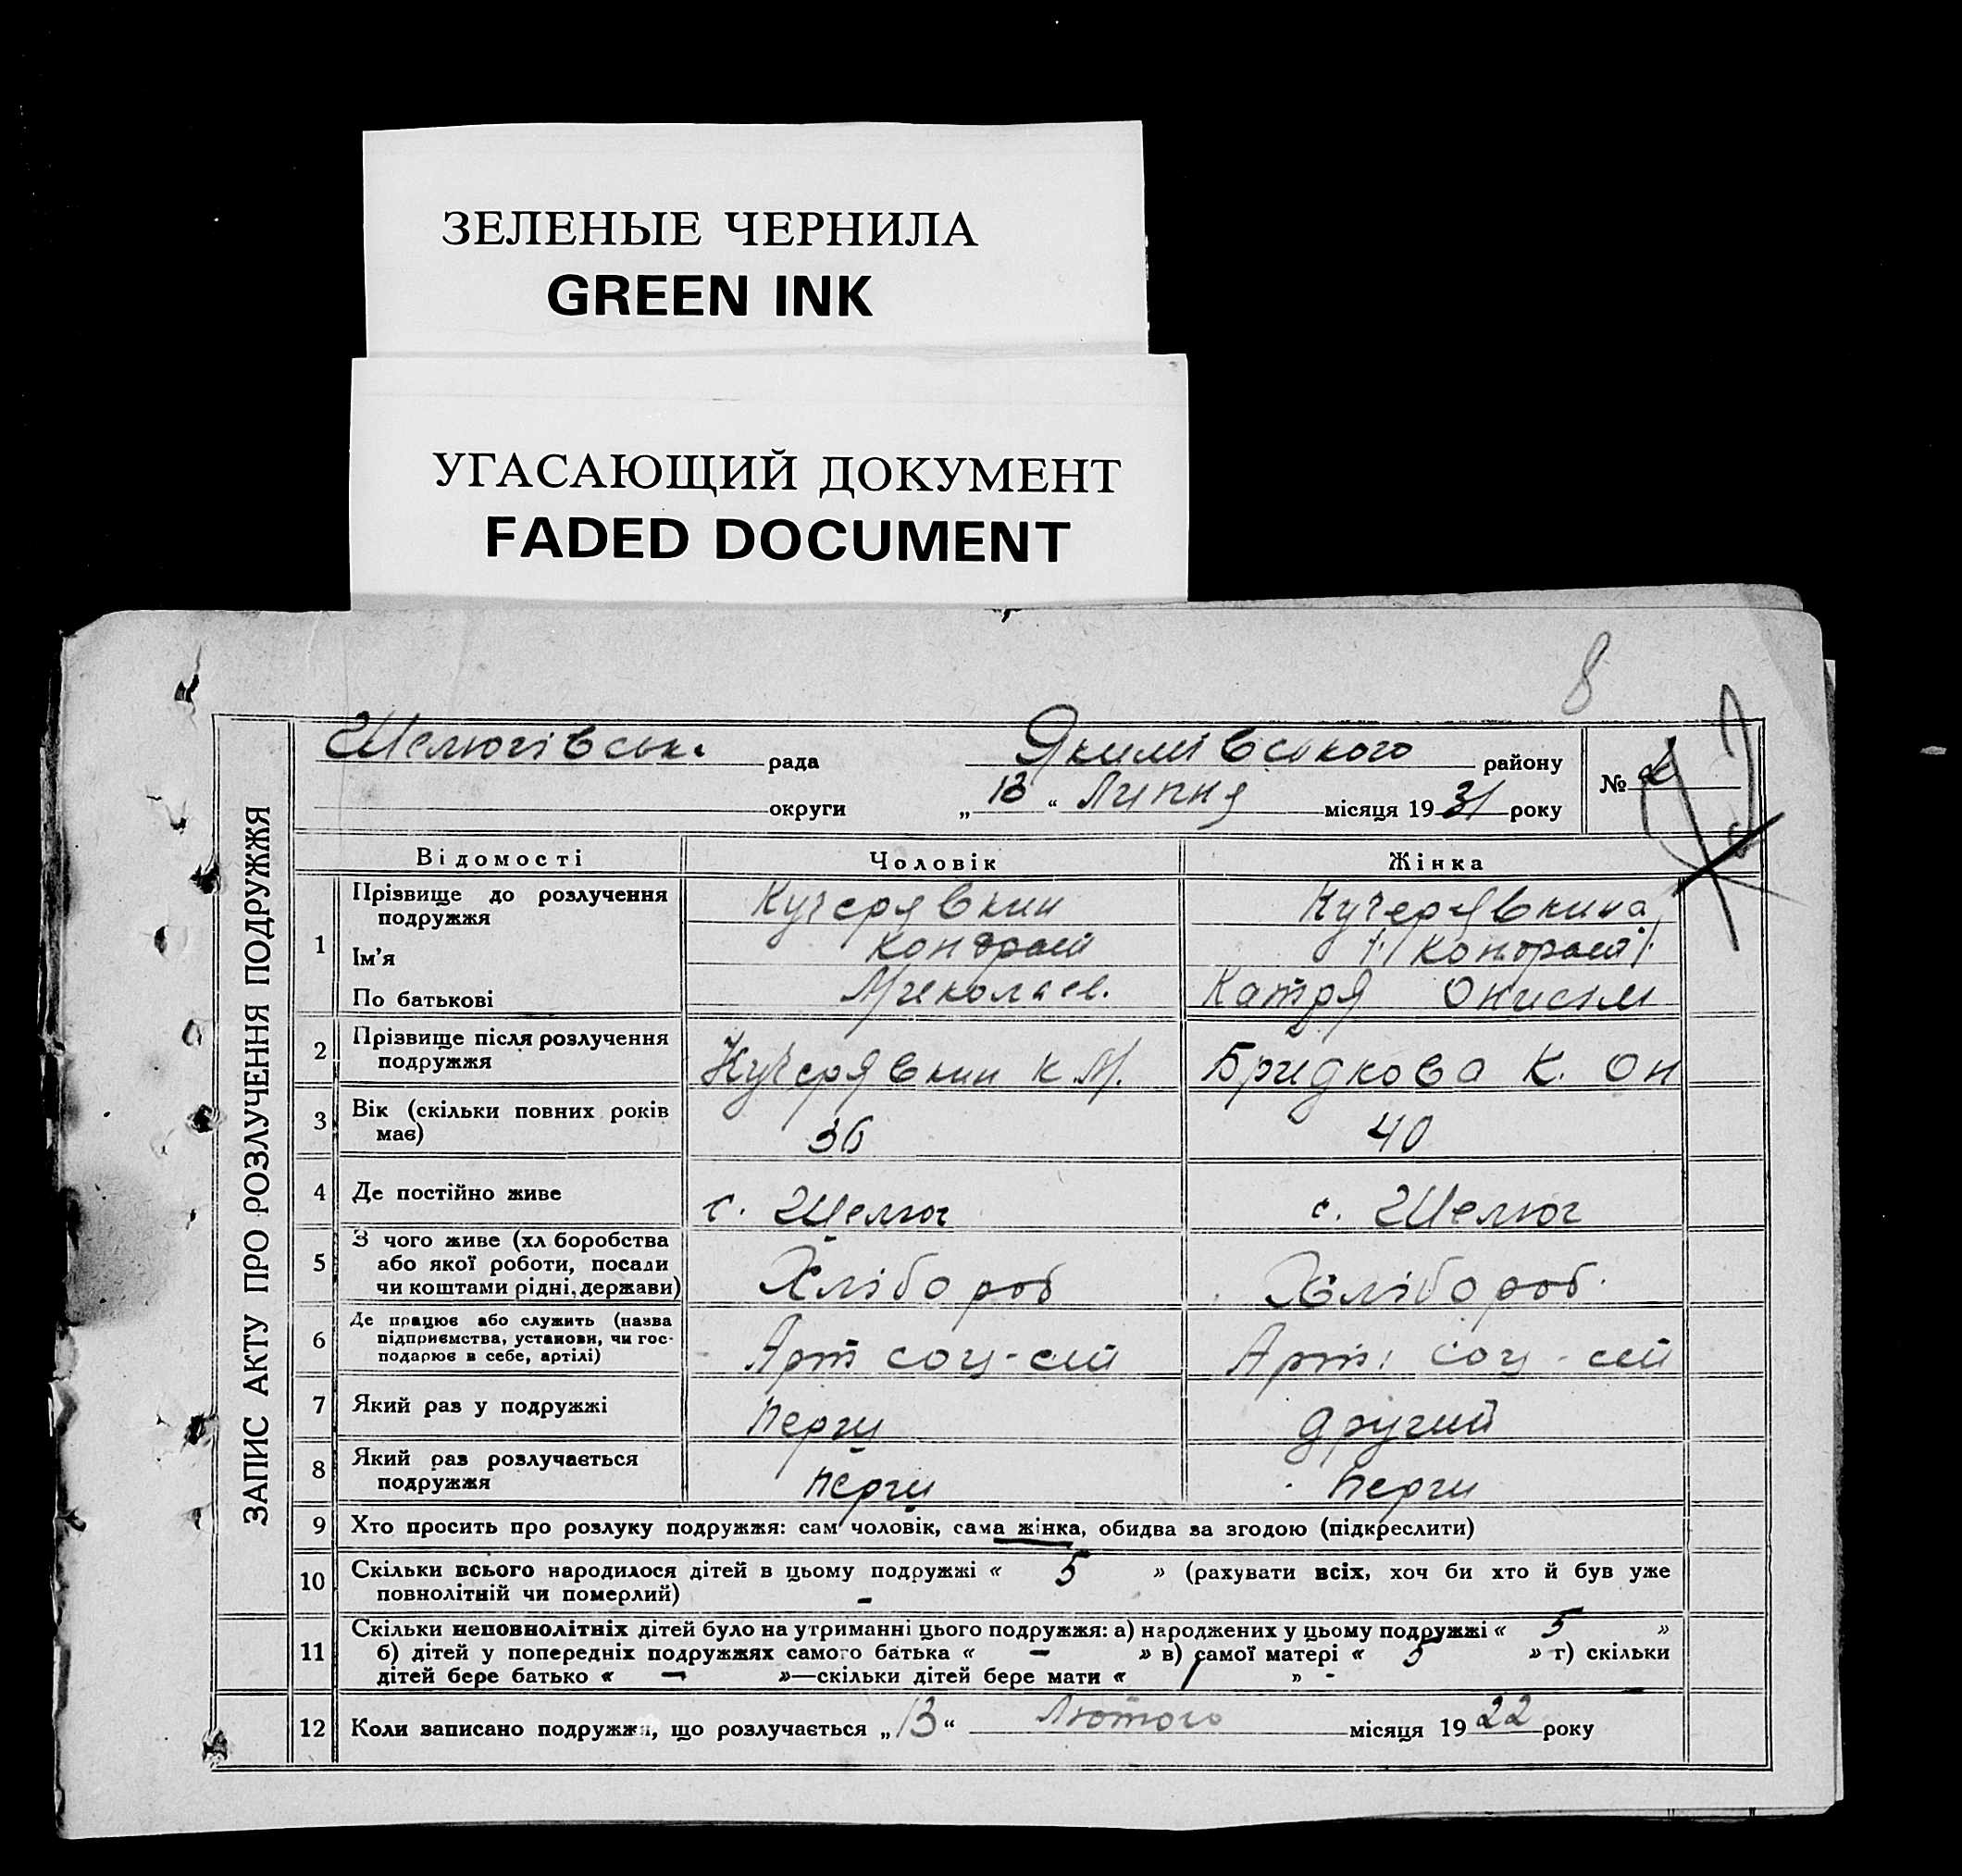 ЗЕЛЕНЫЕ ЧЕРНИЛА
GREEN INK
УГАСАЮЩИЙ ДОКУМЕНТ
FADED DOCUMENT
8
ЗАПИС АКТУ ПРО РОЗЛУЧЕННЯ ПОДРУЖЖЯ
Шелюгівськ. рада Якимівського району
№
округи „13“ Липня місяця 1931 року
Відомості Чоловік Жінка
1 Прізвище до розлучення подружжя Кучерявкин Кучерявкина
Ім'я Кондрат
По батькові Миколаев. Катря Онисим
2 Прізвище після розлучення
подружжя Кучерявкин К М. Бридкова К. Он
3 Вік (скільки повних років
має) 36 40
4 Де постійно живе с. Шелюг с. Шелюг
5 З чого живе (хл боробства
або якої роботи, посади
чи коштами рідні, держави) Хлібороб Хлібороб.
6 Де працює або служить (назва
підприємства, установи, чи гос-
подарює в себе, артілі) Арт соц-сей Арт. соц-сей
7 Який раз у подружжі перги другий
8 Який раз розлучається
подружжя перги перги
9 Хто просить про розлуку подружжя: сам чоловік, сама жінка, обидва за згодою (підкреслити)
10 Скільки всього народилося дітей в цьому подружжі « 5 » (рахувати всіх, хоч би хто й був уже
повнолітній чи померлий) -
11 Скільки неповнолітніх дітей було на утриманні цього подружжя: а) народжених у цьому подружжі « 5 »
б) дітей у попередніх подружжях самого батька « — » в) самої матері « 5 » г) скільки
дітей бере батько « — »—скільки дітей бере мати « » -
12 Коли записано подружжя, що розлучається „13“ Лютого місяця 1922 року